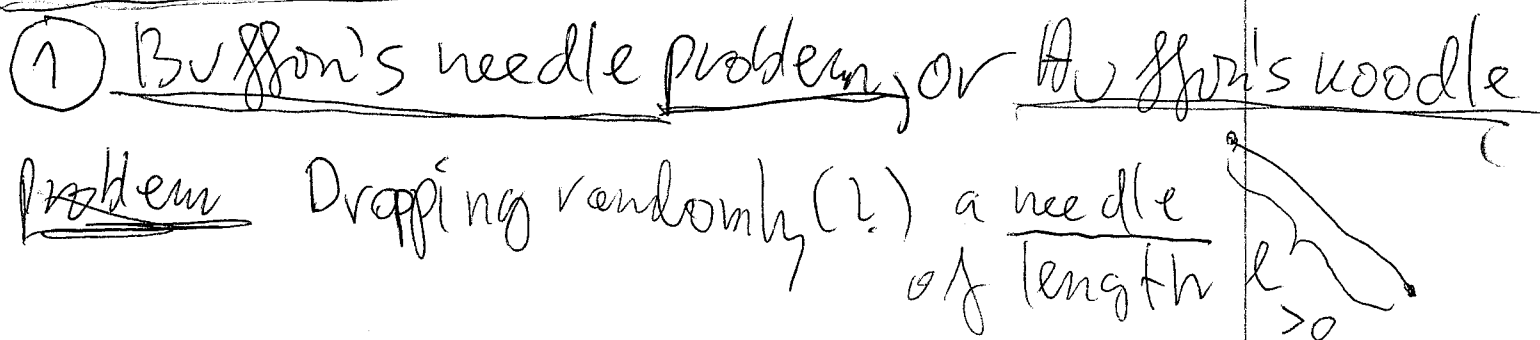 ① Buffon's needle problem, or Buffon's noodle
Problem Dropping randomly(?) a needle
of length ℓ
>0